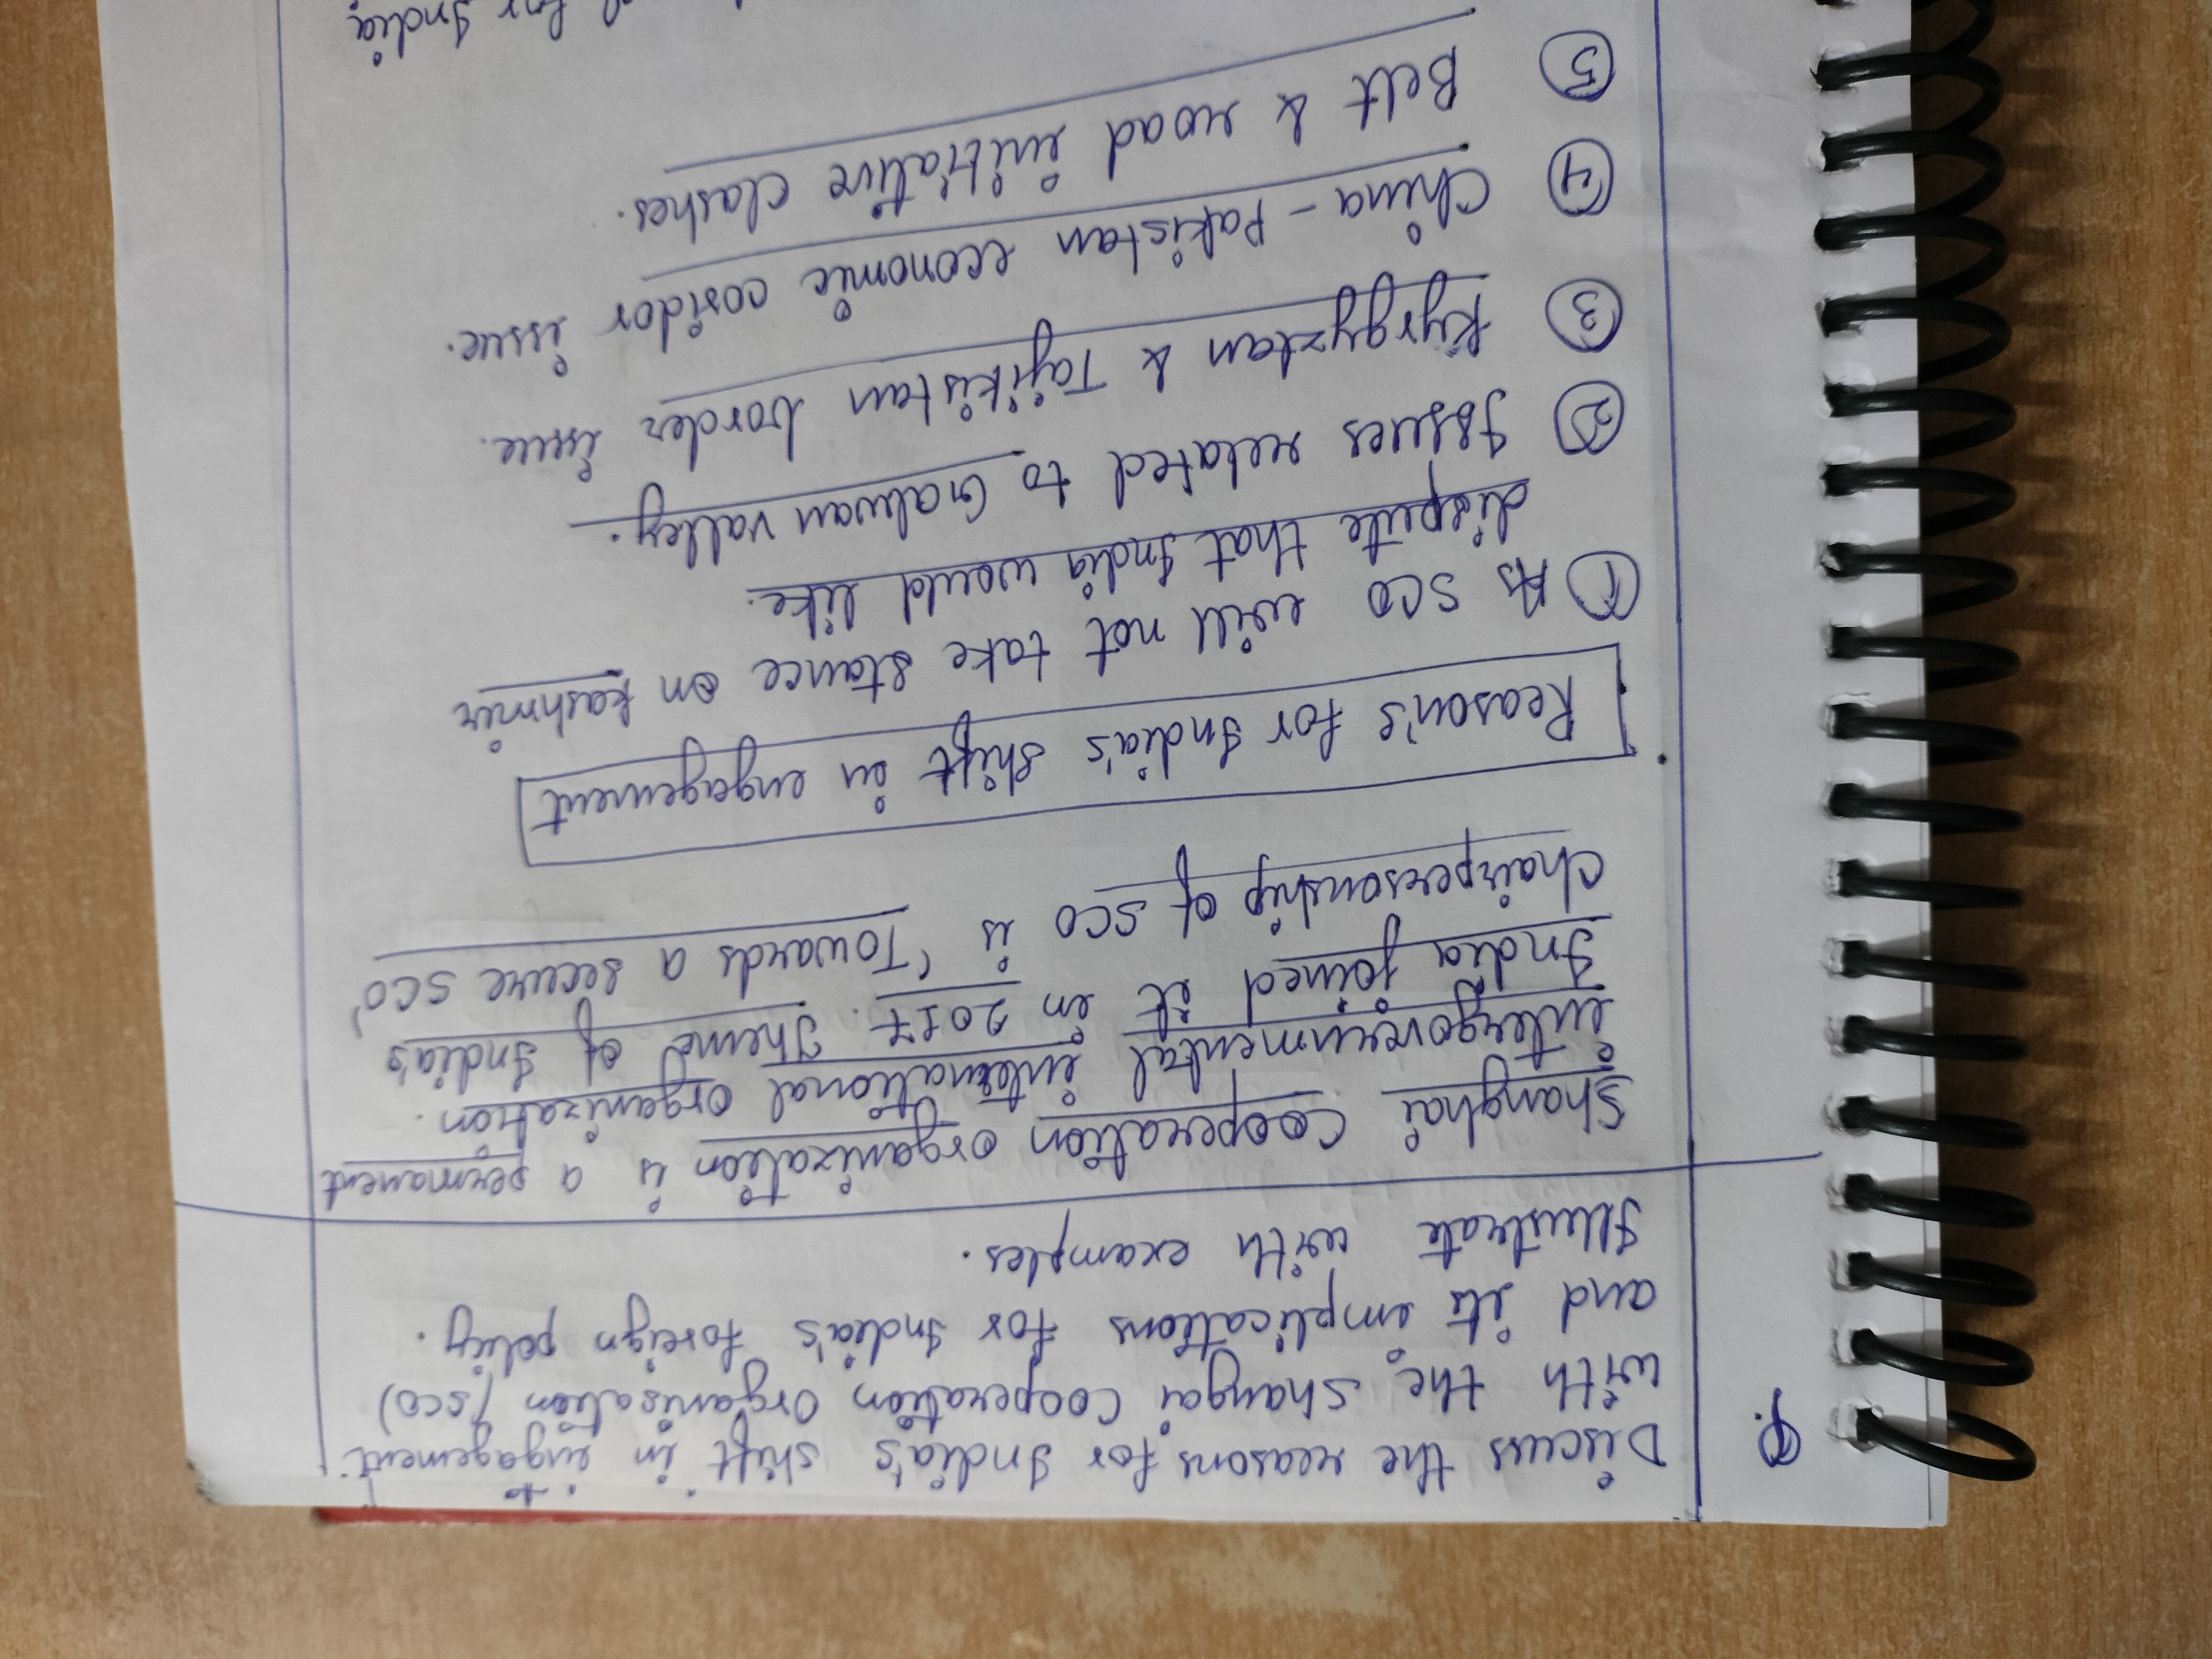 Q. Discuss the reasons for India's shift in engagement
with the Shangai Cooperation Organisation (SCO)
and its implications for India's foreign policy.
Illustrate with examples.
Shanghai Cooperation Organization is a permanent
intergovernmental international organization.
India joined it in 2017. Theme of India's
Chairpersonship of SCO is 'Towards a secure SCO'
Reason's for India's shift in engagement
① As SCO will not take stance on Kashmir
dispute that India would like.
② Issues related to Galwan valley.
③ Kyrgyzstan & Tajikistan border issue.
④ China - Pakistan economic coridor issue.
⑤ Belt & road initiative clashes.
for India